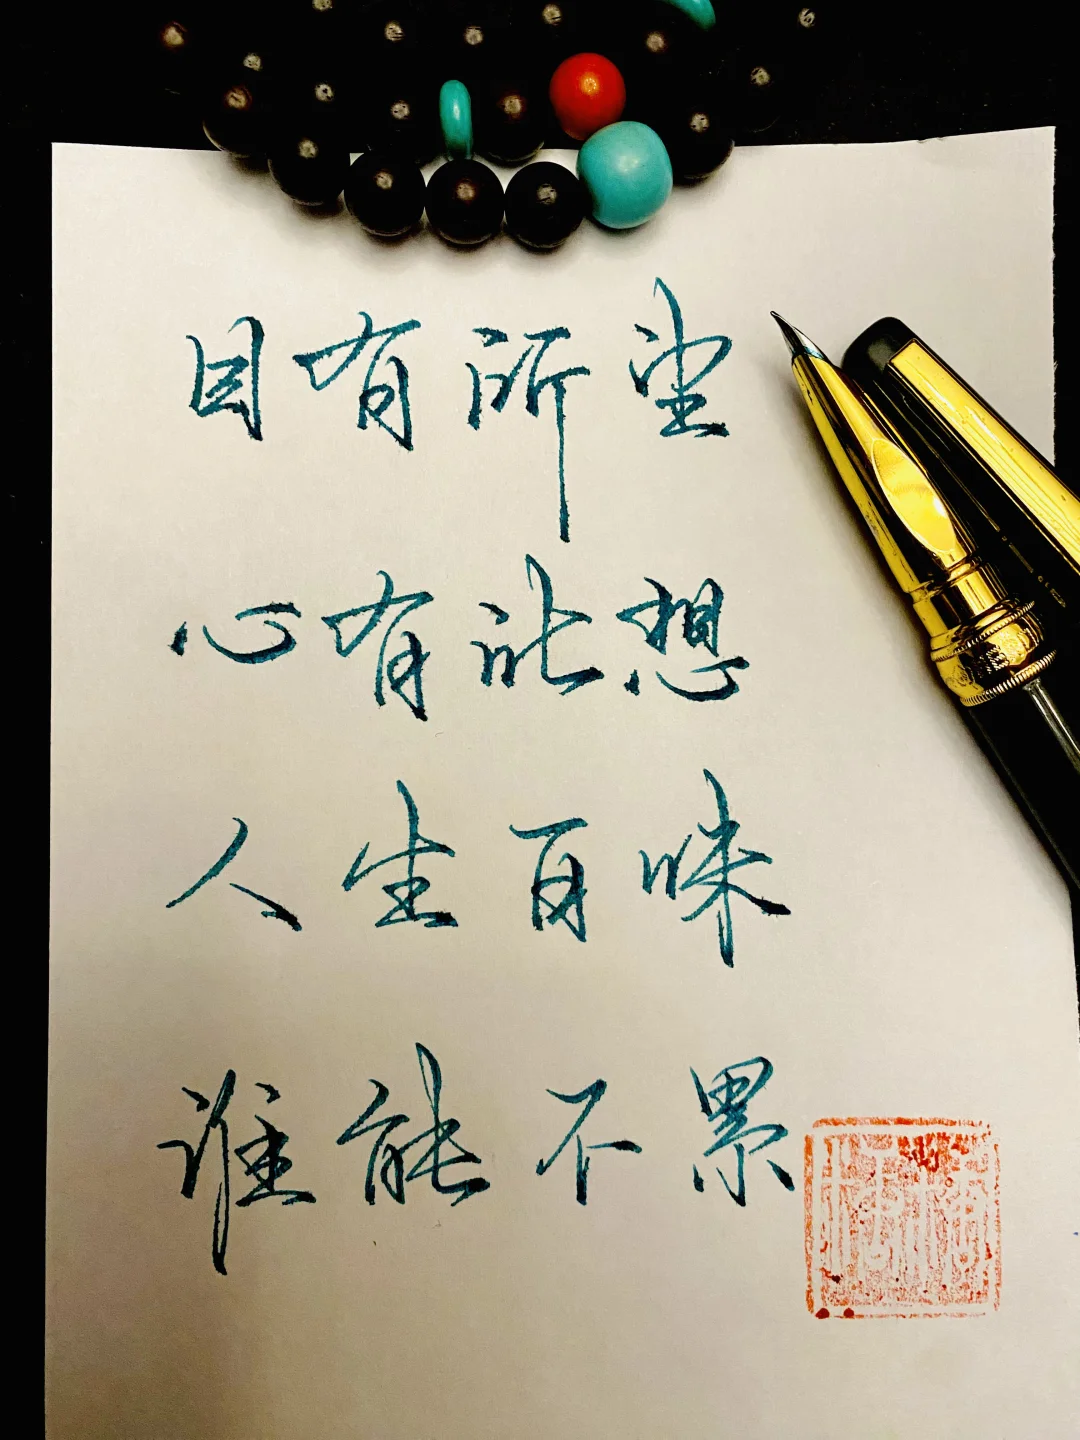 目有所望
心有所想
人生百味
谁能不累